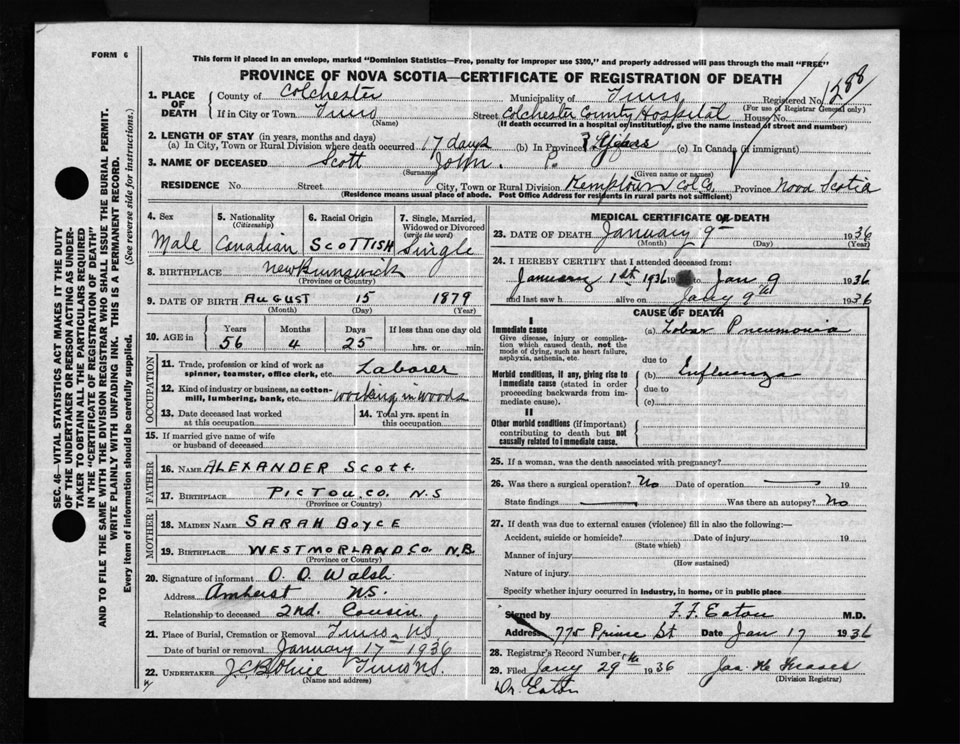 FORM 6
This form if placed in an envelope, marked "Dominion Statistics—Free, penalty for improper use $300," and properly addressed will pass through the mail "FREE"
PROVINCE OF NOVA SCOTIA—CERTIFICATE OF REGISTRATION OF DEATH
1. PLACE OF DEATH { County of Colchester Municipality of Truro Registered No.
(For use of Registrar General only)
If in City or Town Truro Street Colchester County Hospital House No.
(Name) (If death occurred in a hospital or institution, give the name instead of street and number)
2. LENGTH OF STAY (in years, months and days)
(a) In City, Town or Rural Division where death occurred 17 days (b) In Province years (c) In Canada (if immigrant)
3. NAME OF DECEASED Scott John P.
(Surname) (Given name or names)
RESIDENCE No. Street City, Town or Rural Division Kemptown Col Co. Province Nova Scotia
(Residence means usual place of abode. Post Office Address for residents in rural parts not sufficient)
4. Sex Male
5. Nationality (Citizenship) Canadian
6. Racial Origin SCOTTISH
7. Single, Married, Widowed or Divorced (write the word) Single
8. BIRTHPLACE New Brunswick
(Province or Country)
9. DATE OF BIRTH AUGUST 15 1879
(Month) (Day) (Year)
10. AGE in Years Months Days If less than one day
56 4 25 hrs. or min.
OCCUPATION
11. Trade, profession or kind of work as spinner, teamster, office clerk, etc. Laborer
12. Kind of industry or business, as cotton-mill, lumbering, bank, etc. working in woods
13. Date deceased last worked at this occupation
14. Total yrs. spent in this occupation
15. If married give name of wife or husband of deceased
FATHER
16. NAME ALEXANDER Scott.
17. BIRTHPLACE PICTOU. CO. N.S
(Province or Country)
MOTHER
18. MAIDEN NAME SARAH BOYCE
19. BIRTHPLACE WESTMORLAND Co. N.B.
(Province or Country)
20. Signature of informant O. D. Walsh
Address Amherst NS.
Relationship to deceased 2nd. Cousin.
21. Place of Burial, Cremation or Removal Truro NS
Date of burial or removal January 17 1936
22. UNDERTAKER Truro NS.
(Name and address)
MEDICAL CERTIFICATE OF DEATH
23. DATE OF DEATH January 9 1936
(Month) (Day) (Year)
24. I HEREBY CERTIFY that I attended deceased from:
January 1st 1936 19 to Jan 9 1936
and last saw h alive on Jany 9th 1936
CAUSE OF DEATH
I
Immediate cause (a) Lobar Pneumonia
Give disease, injury or complication which caused death, not the mode of dying, such as heart failure, asphyxia, asthenia, etc.
due to
Morbid conditions, if any, giving rise to immediate cause (stated in order proceeding backwards from immediate cause).
(b) Influenza
due to
(c)
II
Other morbid conditions (if important) contributing to death but not causally related to immediate cause.
25. If a woman, was the death associated with pregnancy?
26. Was there a surgical operation? No Date of operation 19
State findings Was there an autopsy? No
27. If death was due to external causes (violence) fill in also the following:—
Accident, suicide or homicide? Date of injury 19
(State which)
Manner of injury
(How sustained)
Nature of injury
Specify whether injury occurred in industry, in home, or in public place
Signed by F. F. Eaton M.D.
Address 775 Prince St Date Jan 17 1936
28. Registrar's Record Number
29. Filed Jany 29th 1936
(Division Registrar)
Dr. Eaton
SEC. 46—VITAL STATISTICS ACT MAKES IT THE DUTY
OF THE UNDERTAKER OR PERSON ACTING AS UNDERTAKER
TO OBTAIN ALL THE PARTICULARS REQUIRED
IN THE "CERTIFICATE OF REGISTRATION OF DEATH"
AND TO FILE THE SAME WITH THE DIVISION REGISTRAR WHO SHALL ISSUE THE BURIAL PERMIT.
WRITE PLAINLY WITH UNFADING INK. THIS IS A PERMANENT RECORD.
Every item of information should be carefully supplied. (See reverse side for instructions.)